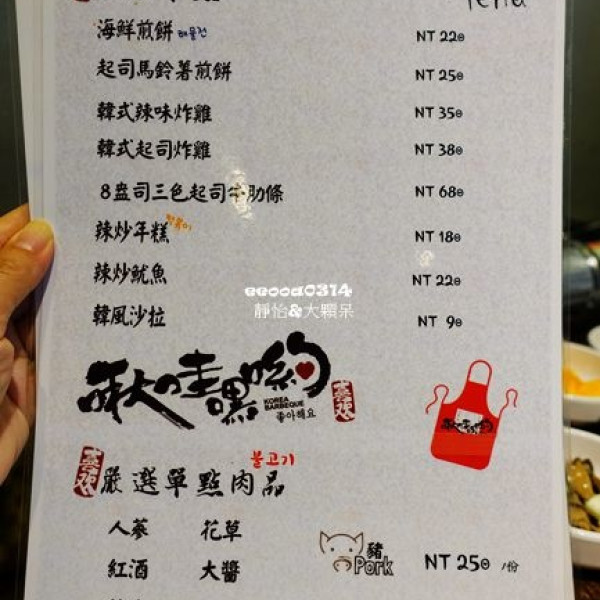 海鮮煎餅 해물전 NT 220
起司馬鈴薯煎餅 NT 250
韓式辣味炸雞 NT 350
韓式起司炸雞 NT 380
8盎司三色起司牛助條 NT 680
辣炒年糕 떡볶이 NT 180
辣炒魷魚 NT 220
韓風沙拉 NT 90
eeooa0314
靜怡&大顆呆
啾哇嘿喲
KOREA
BARBEQUE
좋아해요
喜歡
喜歡 嚴選單點肉品 불고기
人蔘 花草
紅酒 大醬
豬
Pork NT 250 /份